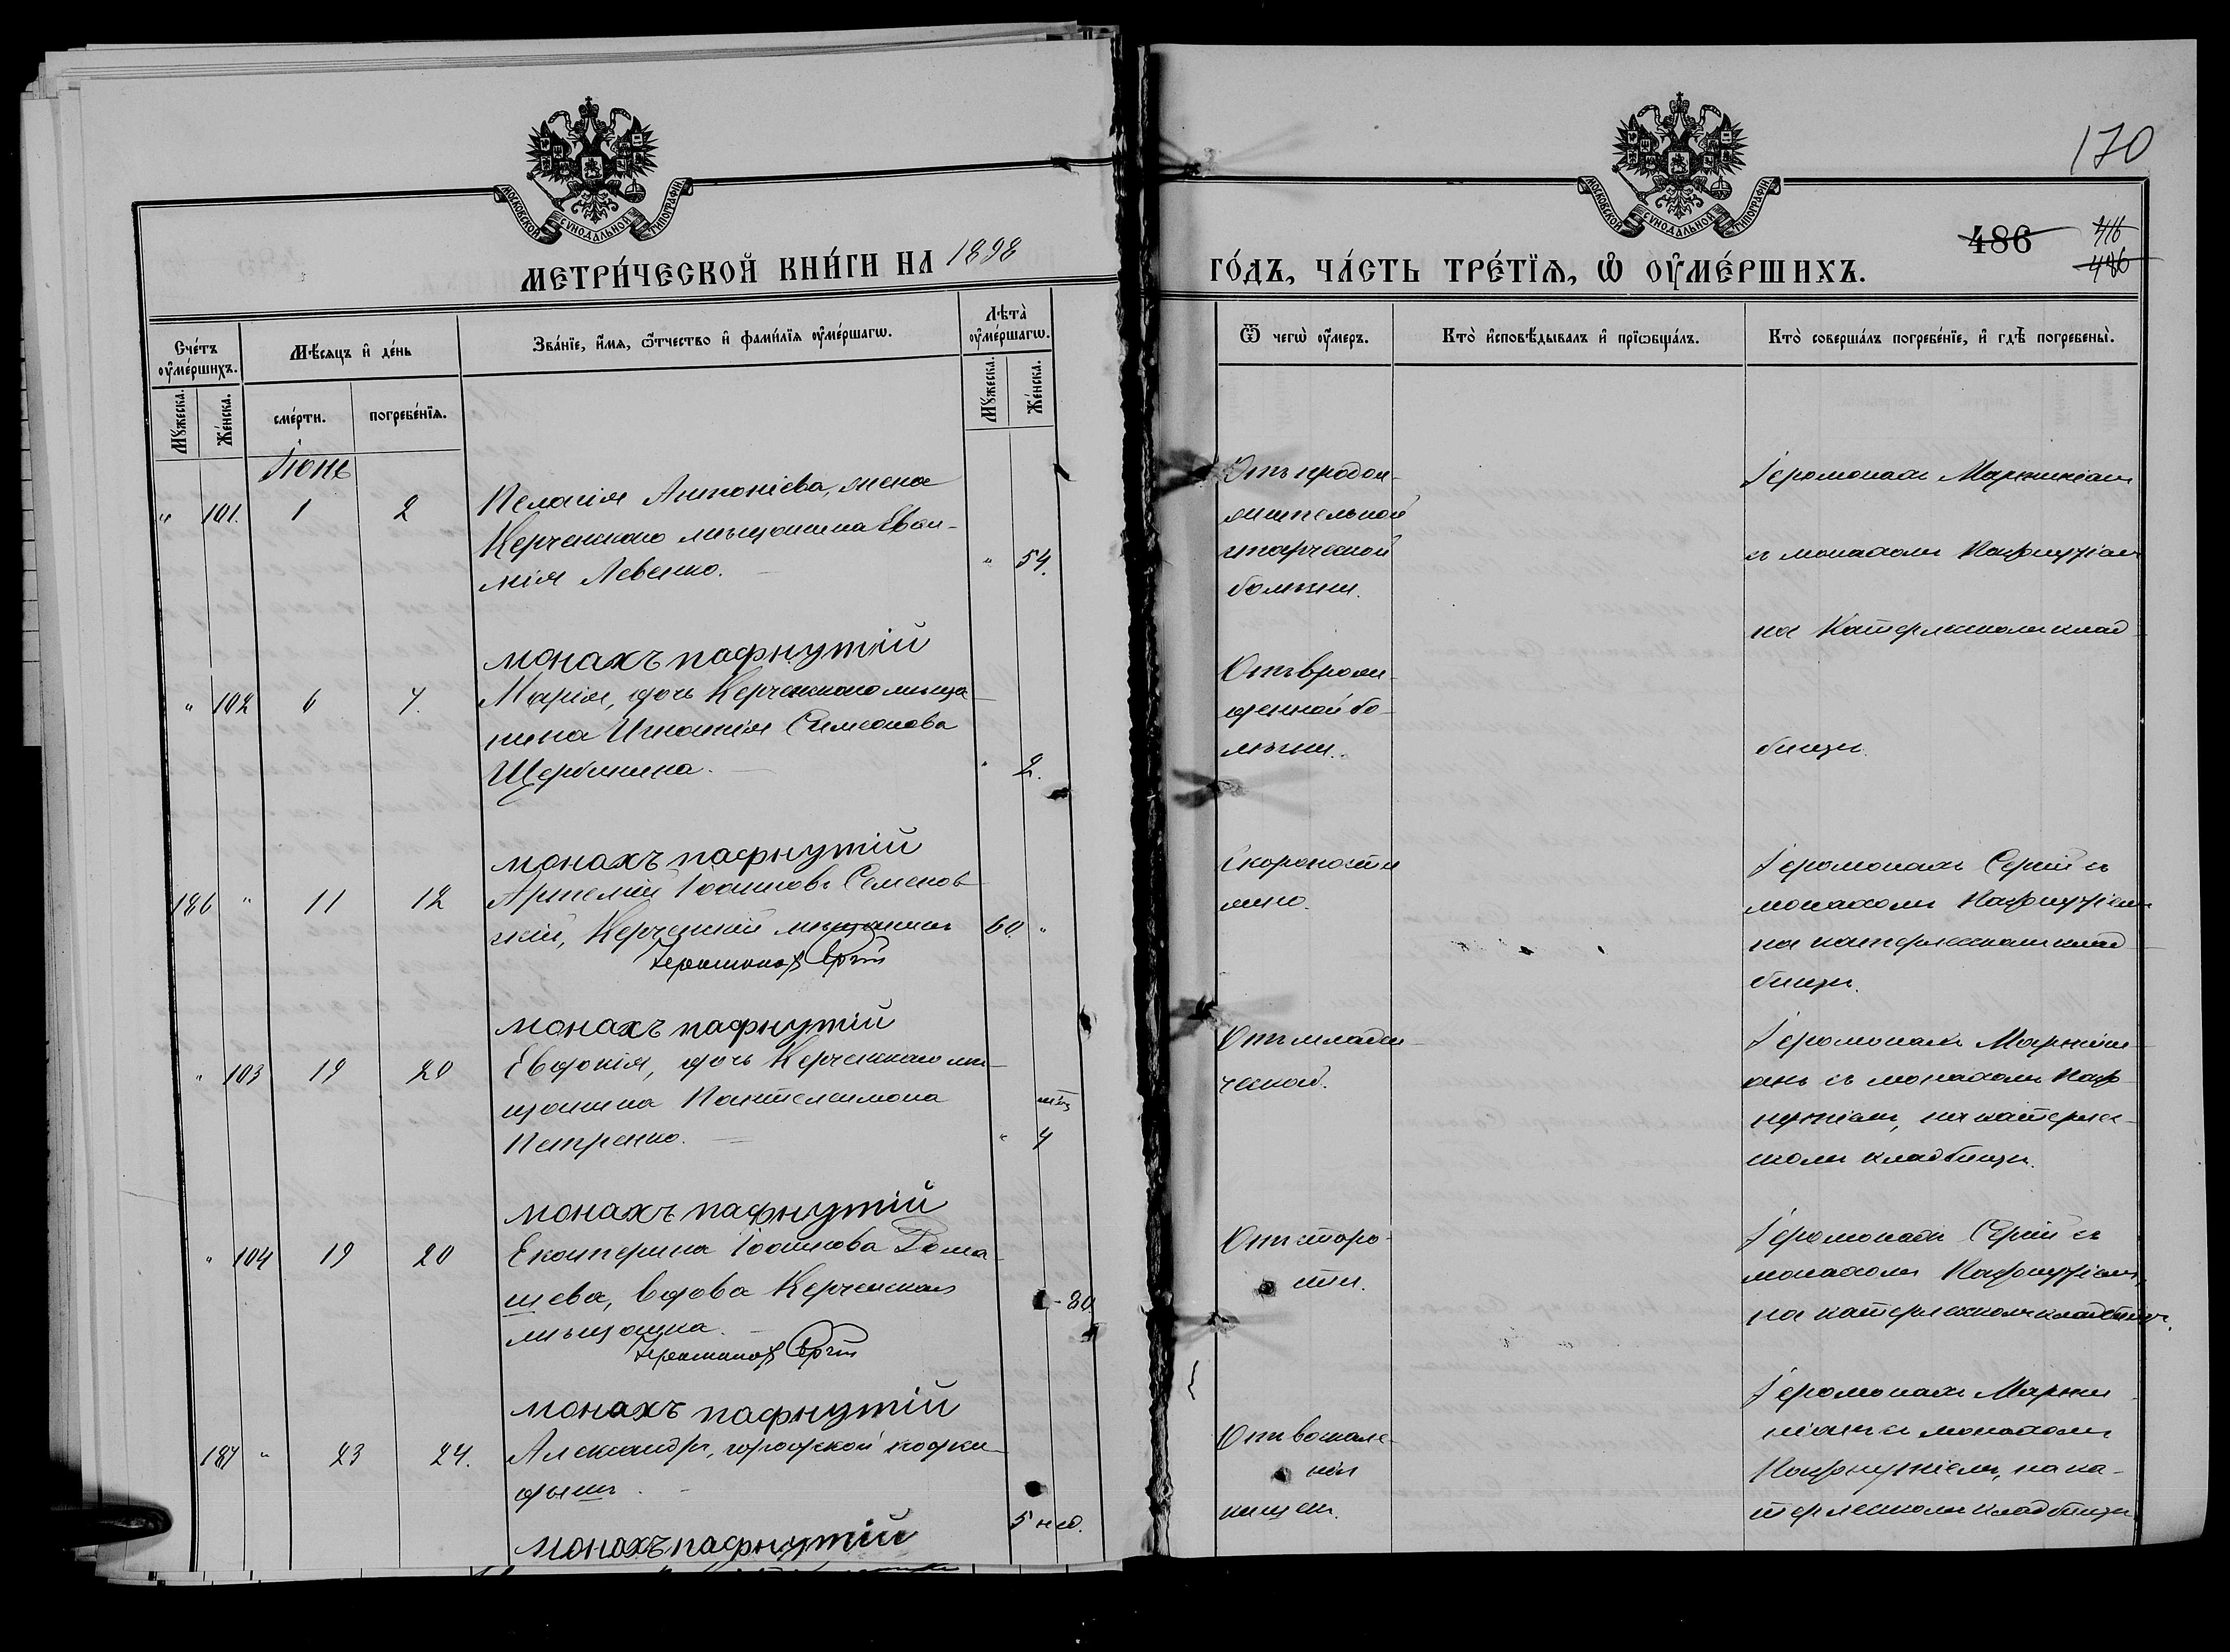 МОСКОВСКОЙ СѴНОДАЛЬНОЙ ТИПОГРАФІИ
МЕТРИ́ЧЕСКОЙ КНИ́ГИ НА 1898
Сче́тъ ᲂу҆ме́ршихъ.
Мѣ́сѧцъ и҆ де́нь
Зва́нїе, и҆́мѧ, ѻ҆́тчество и҆ фами́лїѧ ᲂу҆ме́ршагѡ.
Лѣта̀ ᲂу҆ме́ршагѡ.
Мꙋ́жеска. Же́нска.
сме́рти. погребе́нїѧ.
Мꙋ́жеска. Же́нска.
Іюнь
" 101. 1 2 Пелагія Антоніева, жена
Керченскаго мѣщанина Евѳи-
мія Левенко. " 54.
монахъ пафнутій
" 102 6 7. Марія, дочь Керченскаго мѣща-
нина Игнатія Симеонова
Щербинина. " 2.
монахъ пафнутій
186 " 11 12 Артемій Іоанновъ Семенов-
скій, Керченскій мѣщанинъ 60. "
Іеромонах Сергій
монахъ пафнутій
" 103 19 20 Евдокія, дочь Керченскаго мѣ-
щанина Пантелеимона мѣц
Петренко. " 4
монахъ пафнутій
" 104 19 20 Екатерина Іоаннова Дома-
шева, вдова Керченская - 80.
мѣщанка.
Іеромонах Сергій
монахъ пафнутій
187 " 23 24. Александръ, городской подки-
дышъ. 5 нед.
монахъ пафнутій
МОСКОВСКОЙ СѴНОДАЛЬНОЙ ТИПОГРАФІИ
170
486 416
486
ГО́ДЪ, ЧА́СТЬ ТРЕ́ТЇѦ, Ѡ҆ ОУ҆МЕ́РШИХЪ.
Ѿ чегѡ̀ ᲂу҆́меръ.
Кто̀ и҆сповѣ́дывалъ и҆ прїѡбща́лъ.
Кто̀ соверша́лъ погребе́нїе, и҆ гдѣ̀ погребены̀.
Отъ продол-
жительной
старческой
болѣзни.
Іеромонахъ Мартиніанъ
съ монахомъ Пафнутіемъ
на Катерлесскомъ клад-
бищѣ.
Отъ врож-
денной бо-
лѣзни.
Скоропости-
жно.
Іеромонахъ Сергій съ
монахомъ Пафнутіемъ
на катерлесскомъ клад-
бищѣ.
Отъ младен-
ческой.
Іеромонахъ Мартини-
анъ съ монахомъ Паф-
нутіемъ, на катерлес-
скомъ кладбищѣ.
Отъ старо-
сти.
Іеромонахъ Сергій съ
монахомъ Пафнутіемъ,
на катерлесскомъ кладбищѣ.
Отъ воспале-
нія
кишекъ.
Іеромонахъ Марти-
ніанъ съ монахомъ
Пафнутіемъ, на ка-
терлесскомъ кладбищѣ